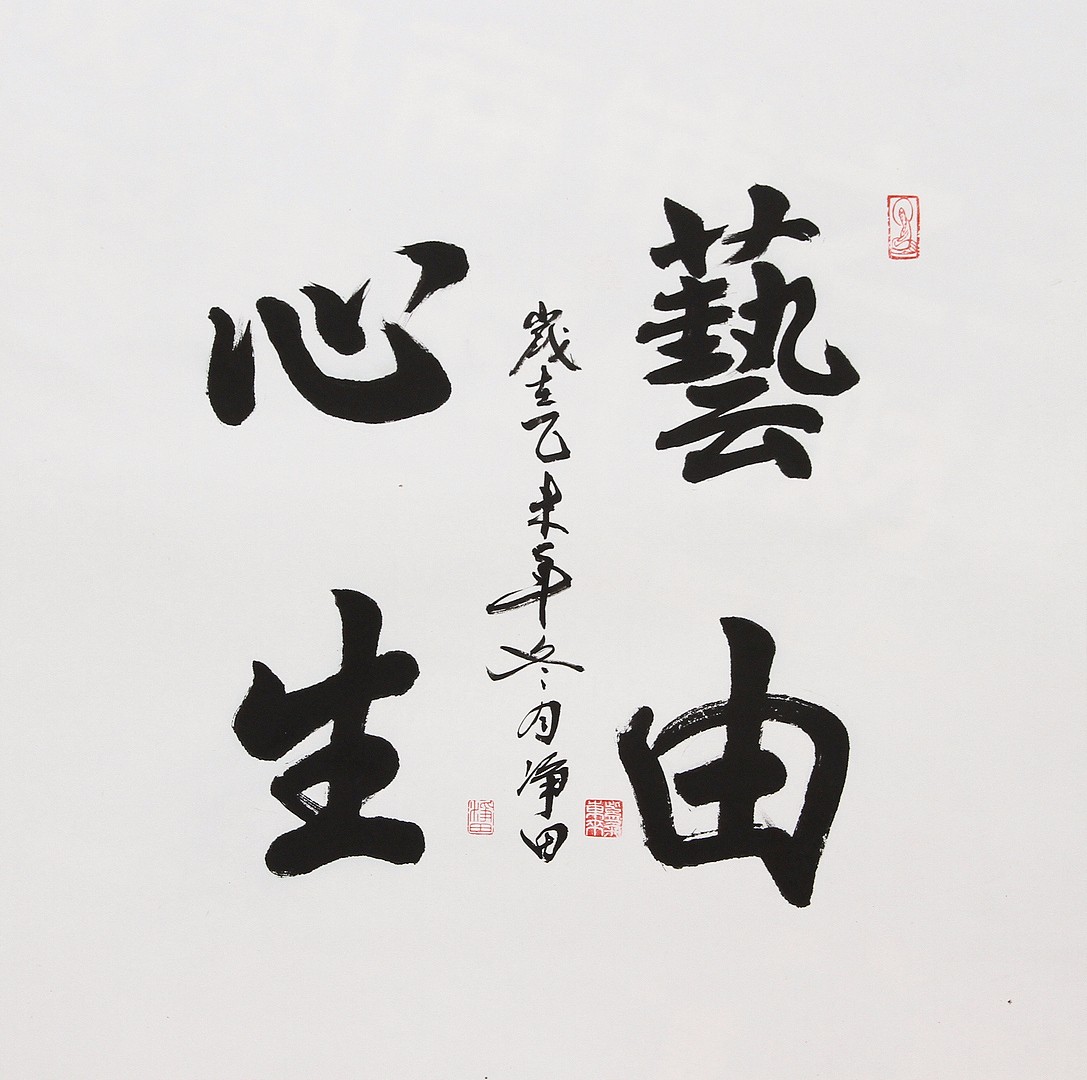 藝由
心生
歲在乙未年冬月淨田